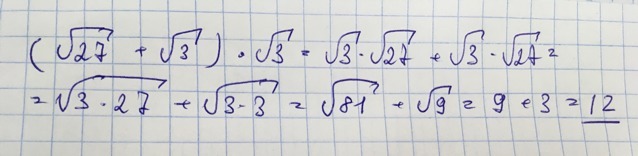 (√27 + √3) · √3 = √3 · √27 + √3 · √27 =
= √3 · 27 + √3 · 3 = √81 + √9 = 9 + 3 = 12